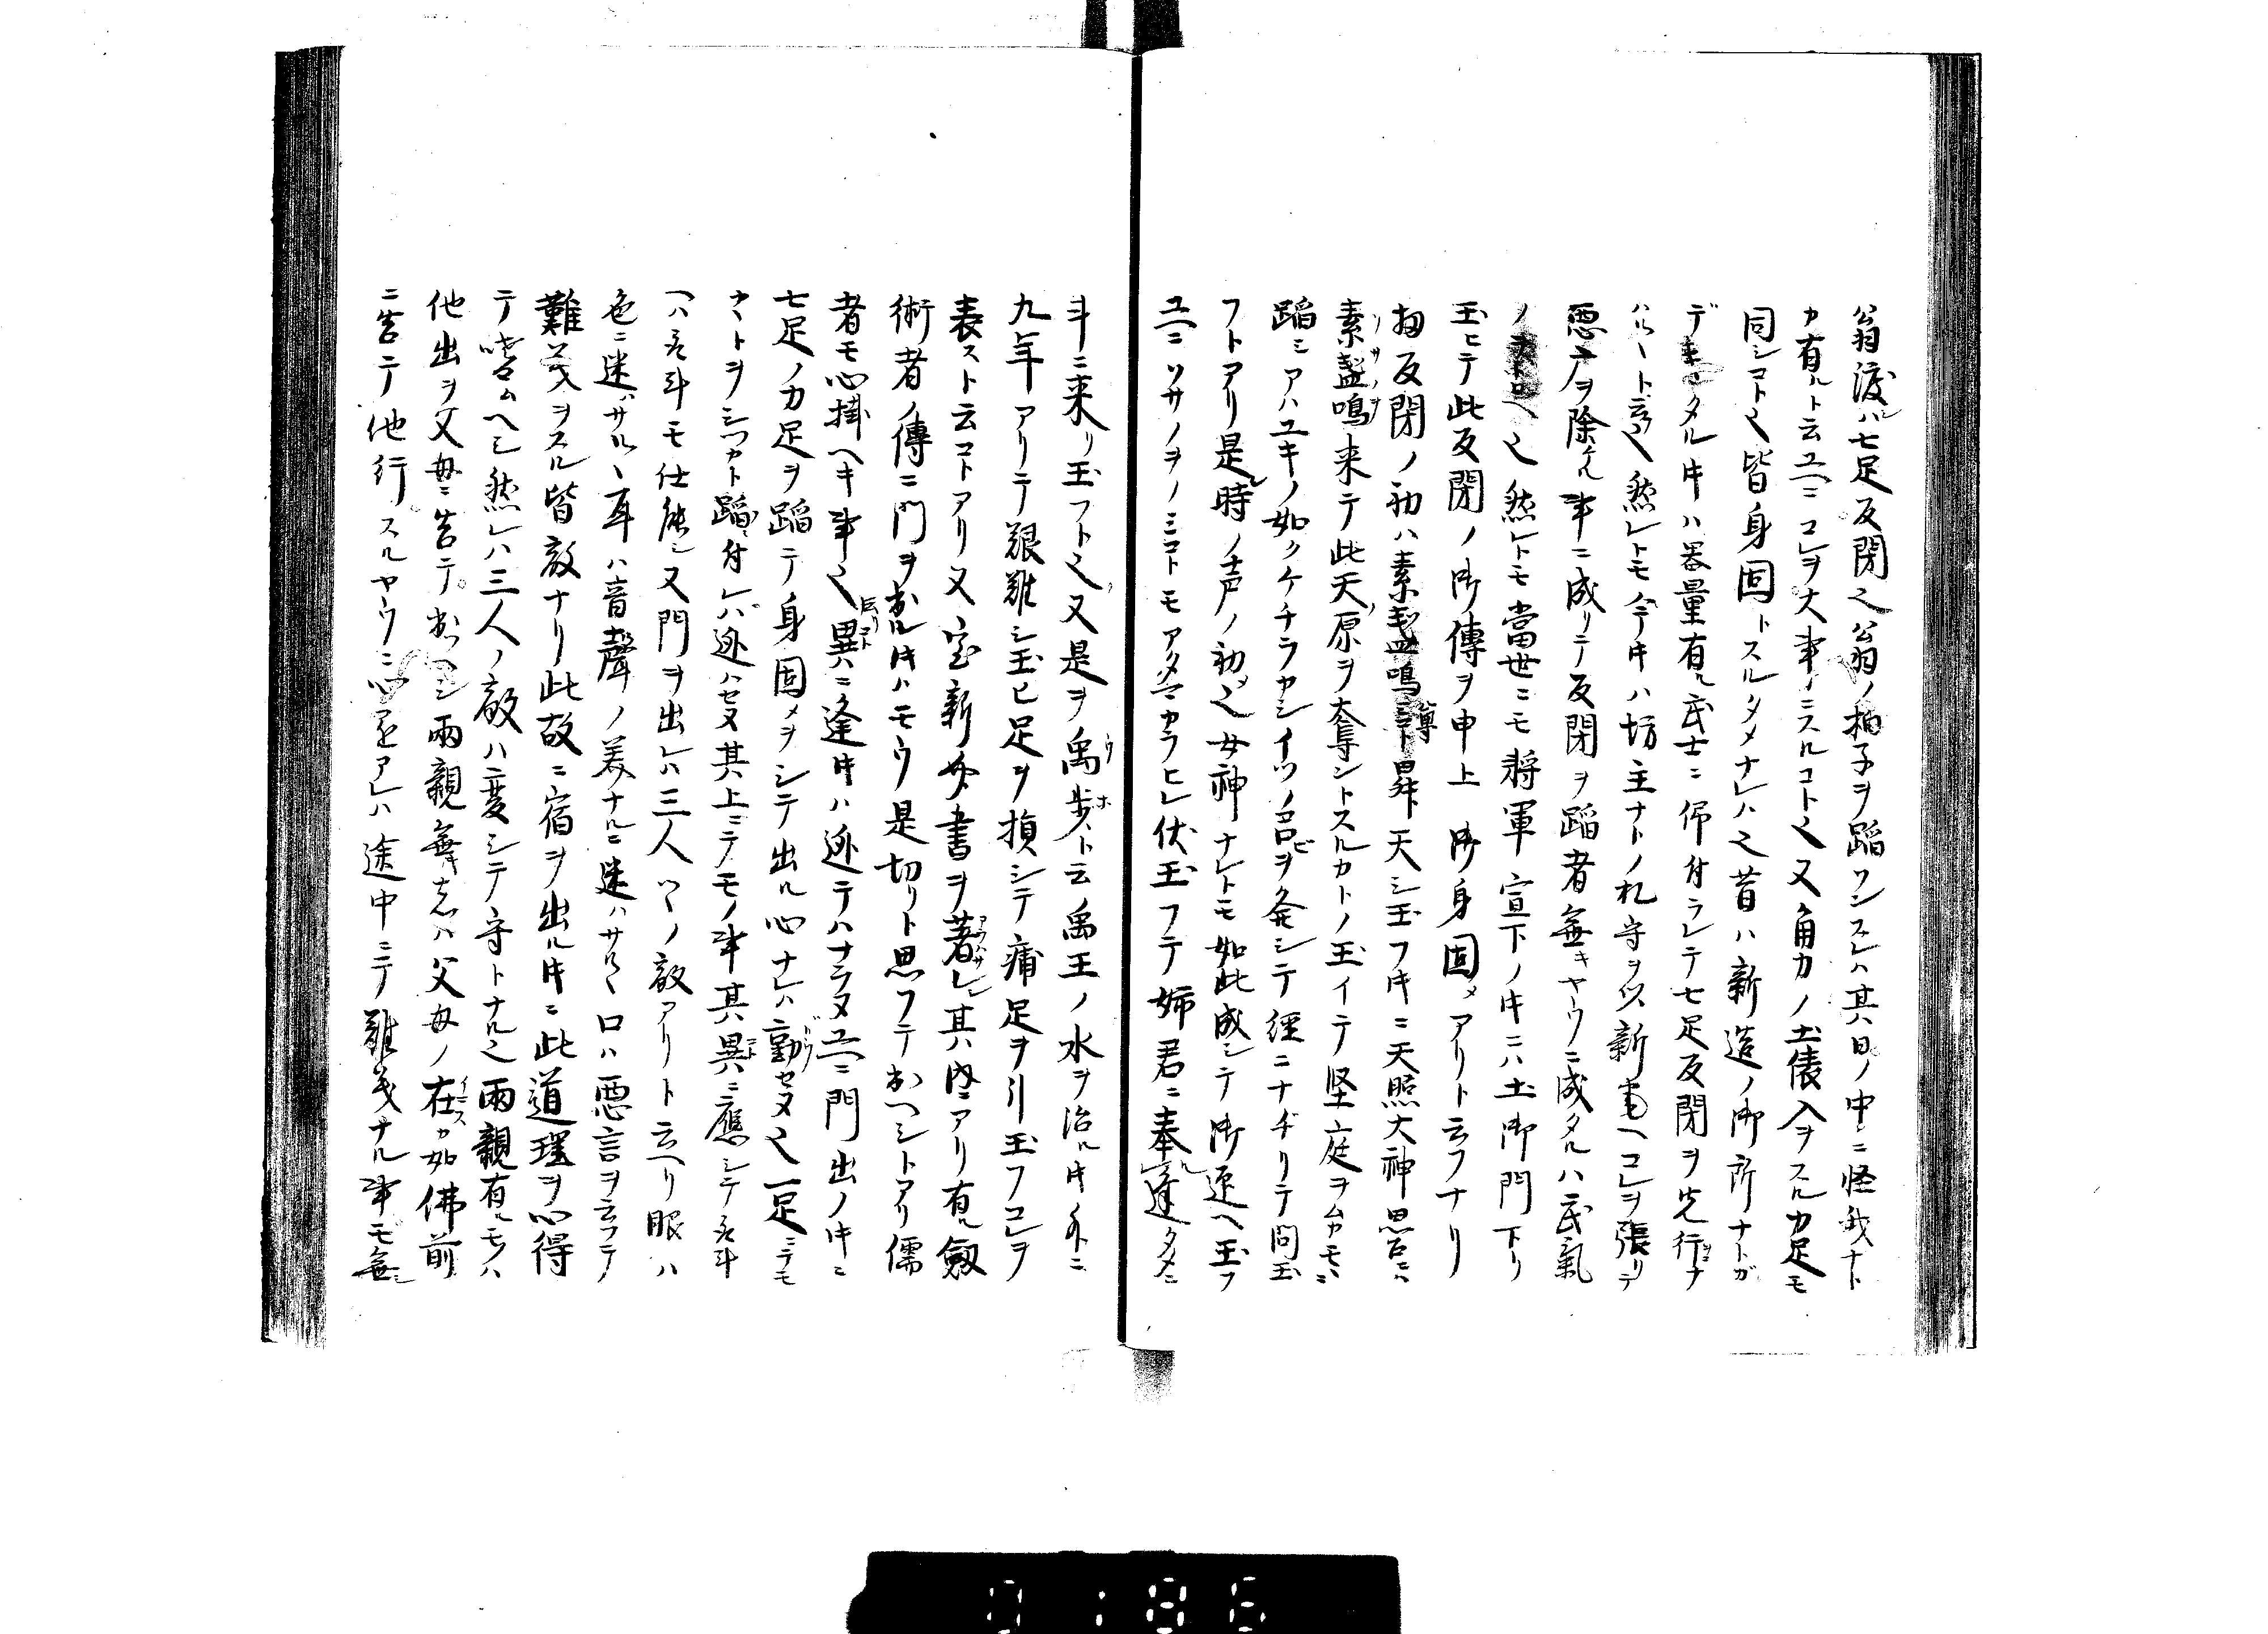 翁渡ハ七足反閉也翁ノ拍子ヲ蹈ソンスレハ其日ノ中ニ怪我ナト
カ有ルト云故ニコレヲ大事ニスルコト也又角力ノ土俵入ヲスル力足モ
同シコト也皆身固トスルタメナレハ也昔ハ新造ノ御所ナトガ
デキタル時ハ器量有ル武士ニ仰付ラレテ七足反閉ヲ先行ナ
ハルヽト云也然レトモ今時ハ坊主ナトノ札守ヲ以新宅ヘコレヲ張リテ
悪方ヲ除ル事ニ成リテ反閉ヲ蹈者無キヤウニ成タルハ武氣
ノ也然レトモ當世ニモ將軍宣下ノ時ニハ土御門下リ
玉ヒテ此反閉ノ御傳ヲ申上御身固メアリト云フナリ
扨反閉ノ初ハ素盞鳴尊昇天シ玉フ時ニ天照大神思召ニハ
素盞鳴来テ此天ノ原ヲ奪ントスルカトノ玉イテ堅庭ヲムカモヽニ
蹈ミアハユキノ如クケチラカシイツノヲ発シテ徑ニナヂリテ問玉
フトアリ是時ノ声ノ初メ也女神ナレトモ如此成シテ御迎ヘ玉フ
故ニソサノヲノミコトモアタマカラヒレ伏玉フテ姉君ニ奉逢タメニ
斗ニ来リ玉フト也又是ヲ禹歩ト云禹王ノ水ヲ治ル時外ニ
九年アリテ艱難シ玉ヒ足ヲ損シテ痛足ヲ引玉フコレヲ
表スト云コトアリ又室新介書ヲ著レシ其内ニアリ有ル劔
術者ノ傳ニ門ヲ出ル時ハモウ是切リト思フテ出ヘシトアリ儒
者モ心掛ヘキ事也異ニ逢時ハ逃テハナラヌ故ニ門出ノ時ニ
七足ノ力足ヲ蹈テ身固メヲシテ出ル心ナレハ動セヌ也一足ニテモ
ナトヲシツカト蹈付レバ逃ハセヌ其上ニテモノ事其異ニ應シテ
ヘハ斗モ仕能シ又門ヲ出レハ三人ツヽノ敵アリト云ヘリ眼ハ
色ニ迷ハサルヽ耳ハ音聲ノ美ナルニ迷ハサルヽ口ハ悪言ヲ云フテ
難義ヲスル皆敵ナリ此故ニ宿ヲ出ル時ニ此道理ヲ心得
テムヘシ然レハ三人ノ敵ハ変シテ守トナル也兩親有ルモノハ
他出ヲ父母ニ告テ出ヘシ兩親無キ者ハ父母ノ在カ如佛前
ニ告テ他行スルヤウニ心アレハ途中ニテ難義ナル事モ無シ